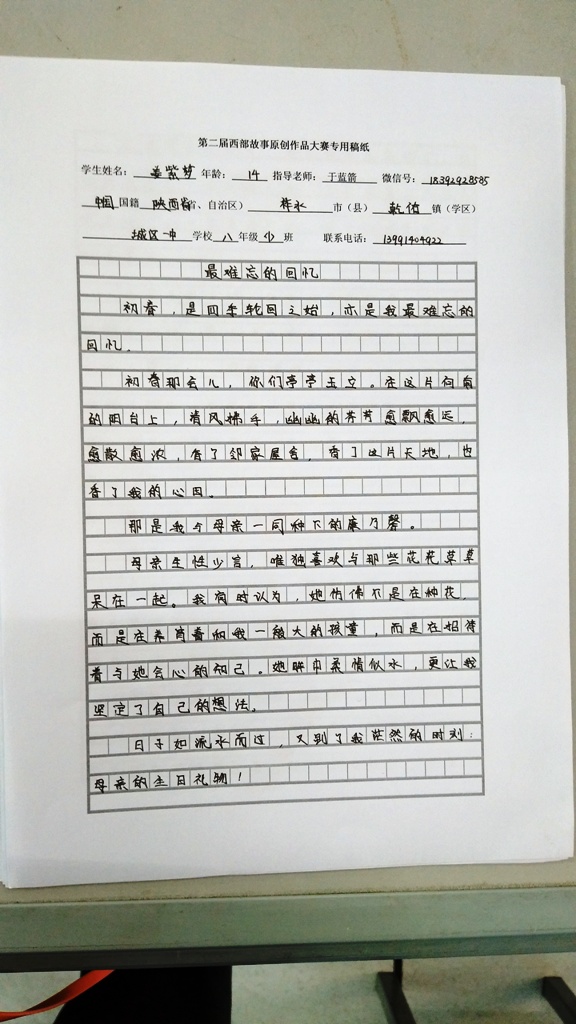 第二届西部故事原创作品大赛专用稿纸
学生姓名：姜紫梦 年龄：14 指导老师：于蓝箭 微信号：18392928585
中国国籍 陕西省（省、自治区） 柞水 市（县） 乾佑 镇（学区）
城区一中 学校 八 年级 少 班 联系电话：13991404922
最难忘的回忆
初春，是四季轮回之始，亦是我最难忘的
回忆。
初春那会儿，你们亭亭玉立。在这片向南
的阳台上，清风拂手，幽幽的芳芳愈飘愈远，
愈散愈浓，香了邻家屋舍，香了这片天地，也
香了我的心田。
那是我与母亲一同种下的康乃馨。
母亲生性少言，唯独喜欢与那些花花草草
呆在一起。我有时认为，她仿佛不是在种花，
而是在养育着和我一般大的孩童，而是在招待
着与她会心的知己。她眸中柔情似水，更让我
坚定了自己的想法。
日子如流水而过，又到了我茫然的时刻：
母亲的生日礼物！